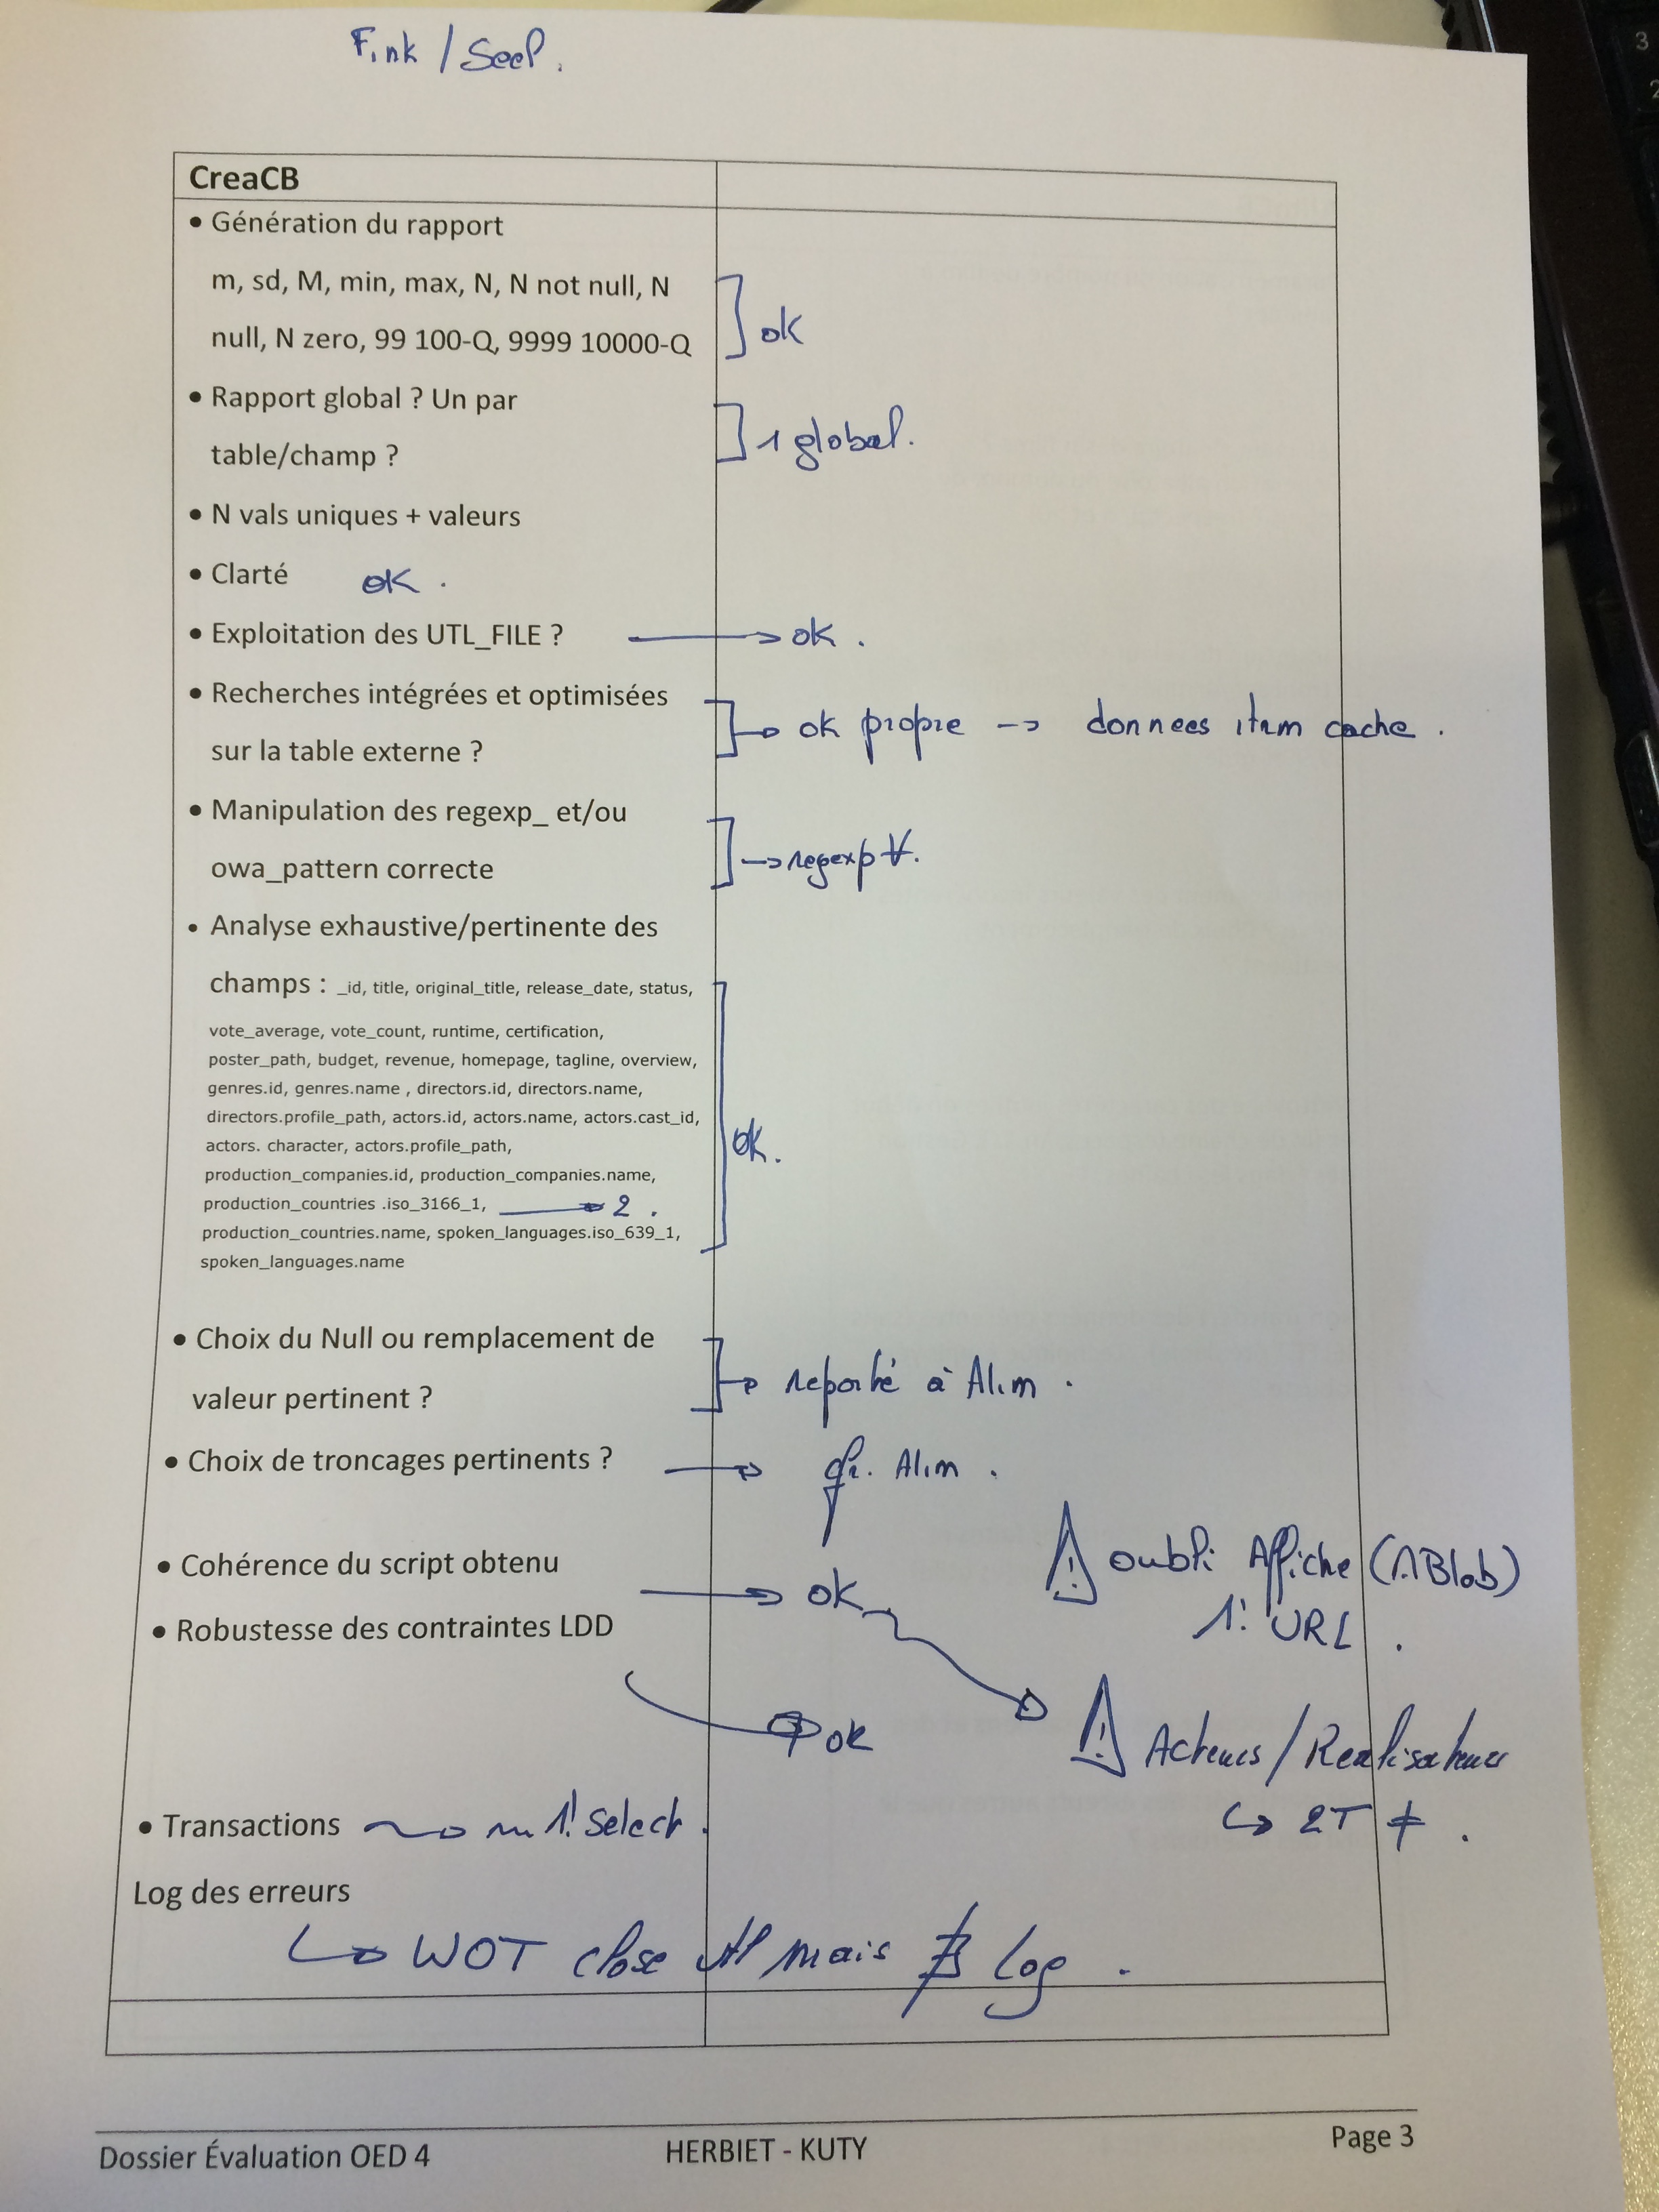 Fink / Seel.
CreaCB
• Génération du rapport
m, sd, M, min, max, N, N not null, N
null, N zero, 99 100-Q, 9999 10000-Q
ok
• Rapport global ? Un par
table/champ ?
1 global.
• N vals uniques + valeurs
• Clarté OK .
• Exploitation des UTL_FILE ? → ok .
• Recherches intégrées et optimisées
sur la table externe ?
→ ok propre → donnees cache .
• Manipulation des regexp_ et/ou
owa_pattern correcte
→ regexp ∀.
• Analyse exhaustive/pertinente des
champs : _id, title, original_title, release_date, status,
vote_average, vote_count, runtime, certification,
poster_path, budget, revenue, homepage, tagline, overview,
genres.id, genres.name , directors.id, directors.name,
directors.profile_path, actors.id, actors.name, actors.cast_id,
actors. character, actors.profile_path,
ok.
production_companies.id, production_companies.name,
production_countries .iso_3166_1, → 2 .
production_countries.name, spoken_languages.iso_639_1,
spoken_languages.name
• Choix du Null ou remplacement de
valeur pertinent ?
→ reporté à Alim .
• Choix de troncages pertinents ? → Alim .
• Cohérence du script obtenu → ok
⚠ oubli Affiche (1Blob)
1! URL .
• Robustesse des contraintes LDD
→ ok
⚠ Acteurs / Realisateurs
↳ 2T ≠ .
• Transactions → 1! Select .
Log des erreurs
↳ WOT close mais ∄ Log .
Dossier Évaluation OED 4 HERBIET - KUTY Page 3